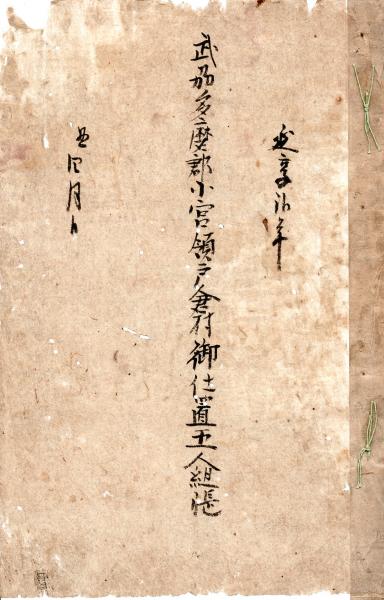 延享弐年
武州多麿郡小宮領戸倉村御仕置五人組帳
丑四月日